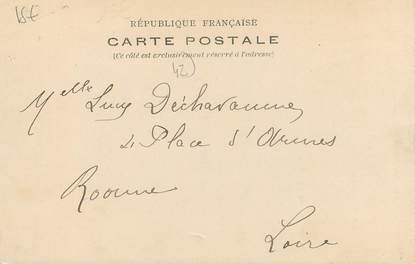 15€
RÉPUBLIQUE FRANÇAISE
CARTE POSTALE
(Ce côté est exclusivement réservé à l'adresse)
(42)
Melle Lucy Déchavanne
4 Place d'Armes
Roanne
Loire